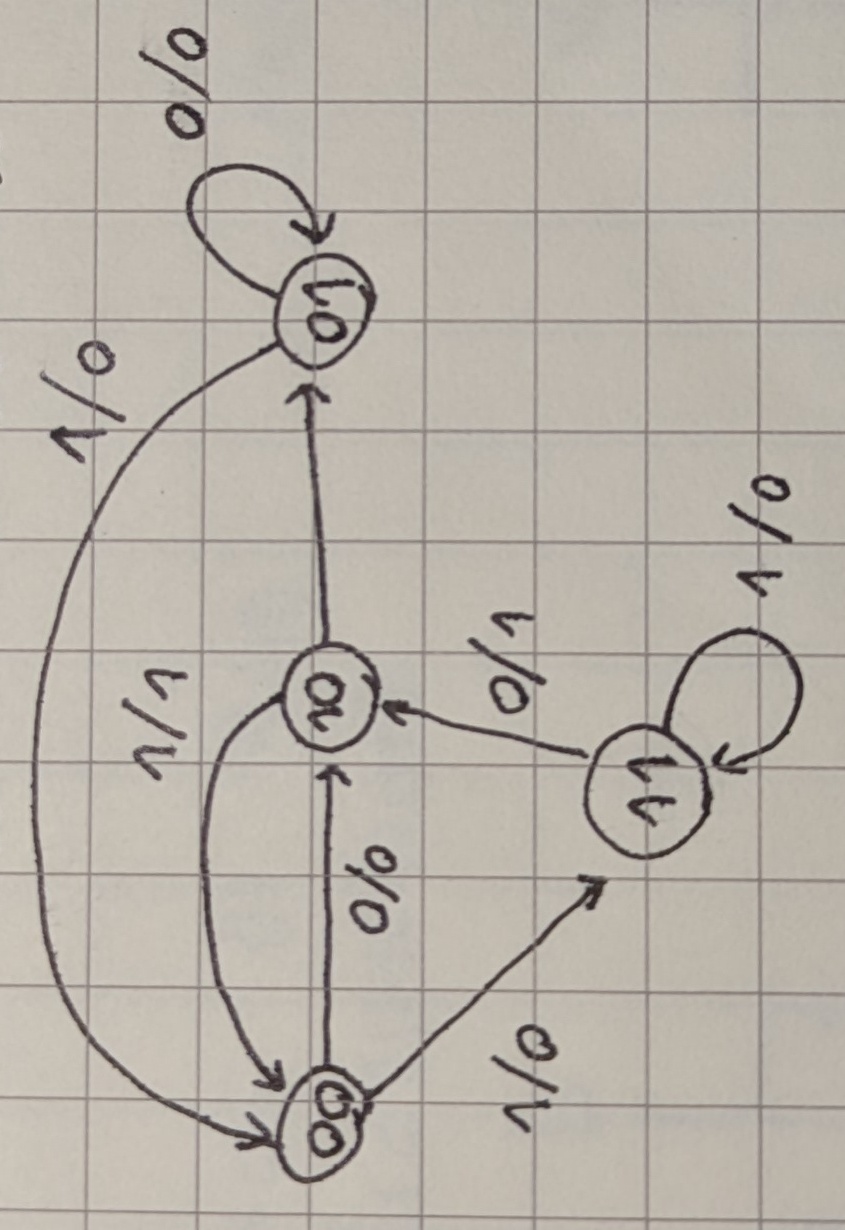 1/0
1/1
0/0
00
10
01
0/0
1/0
0/1
11
1/0